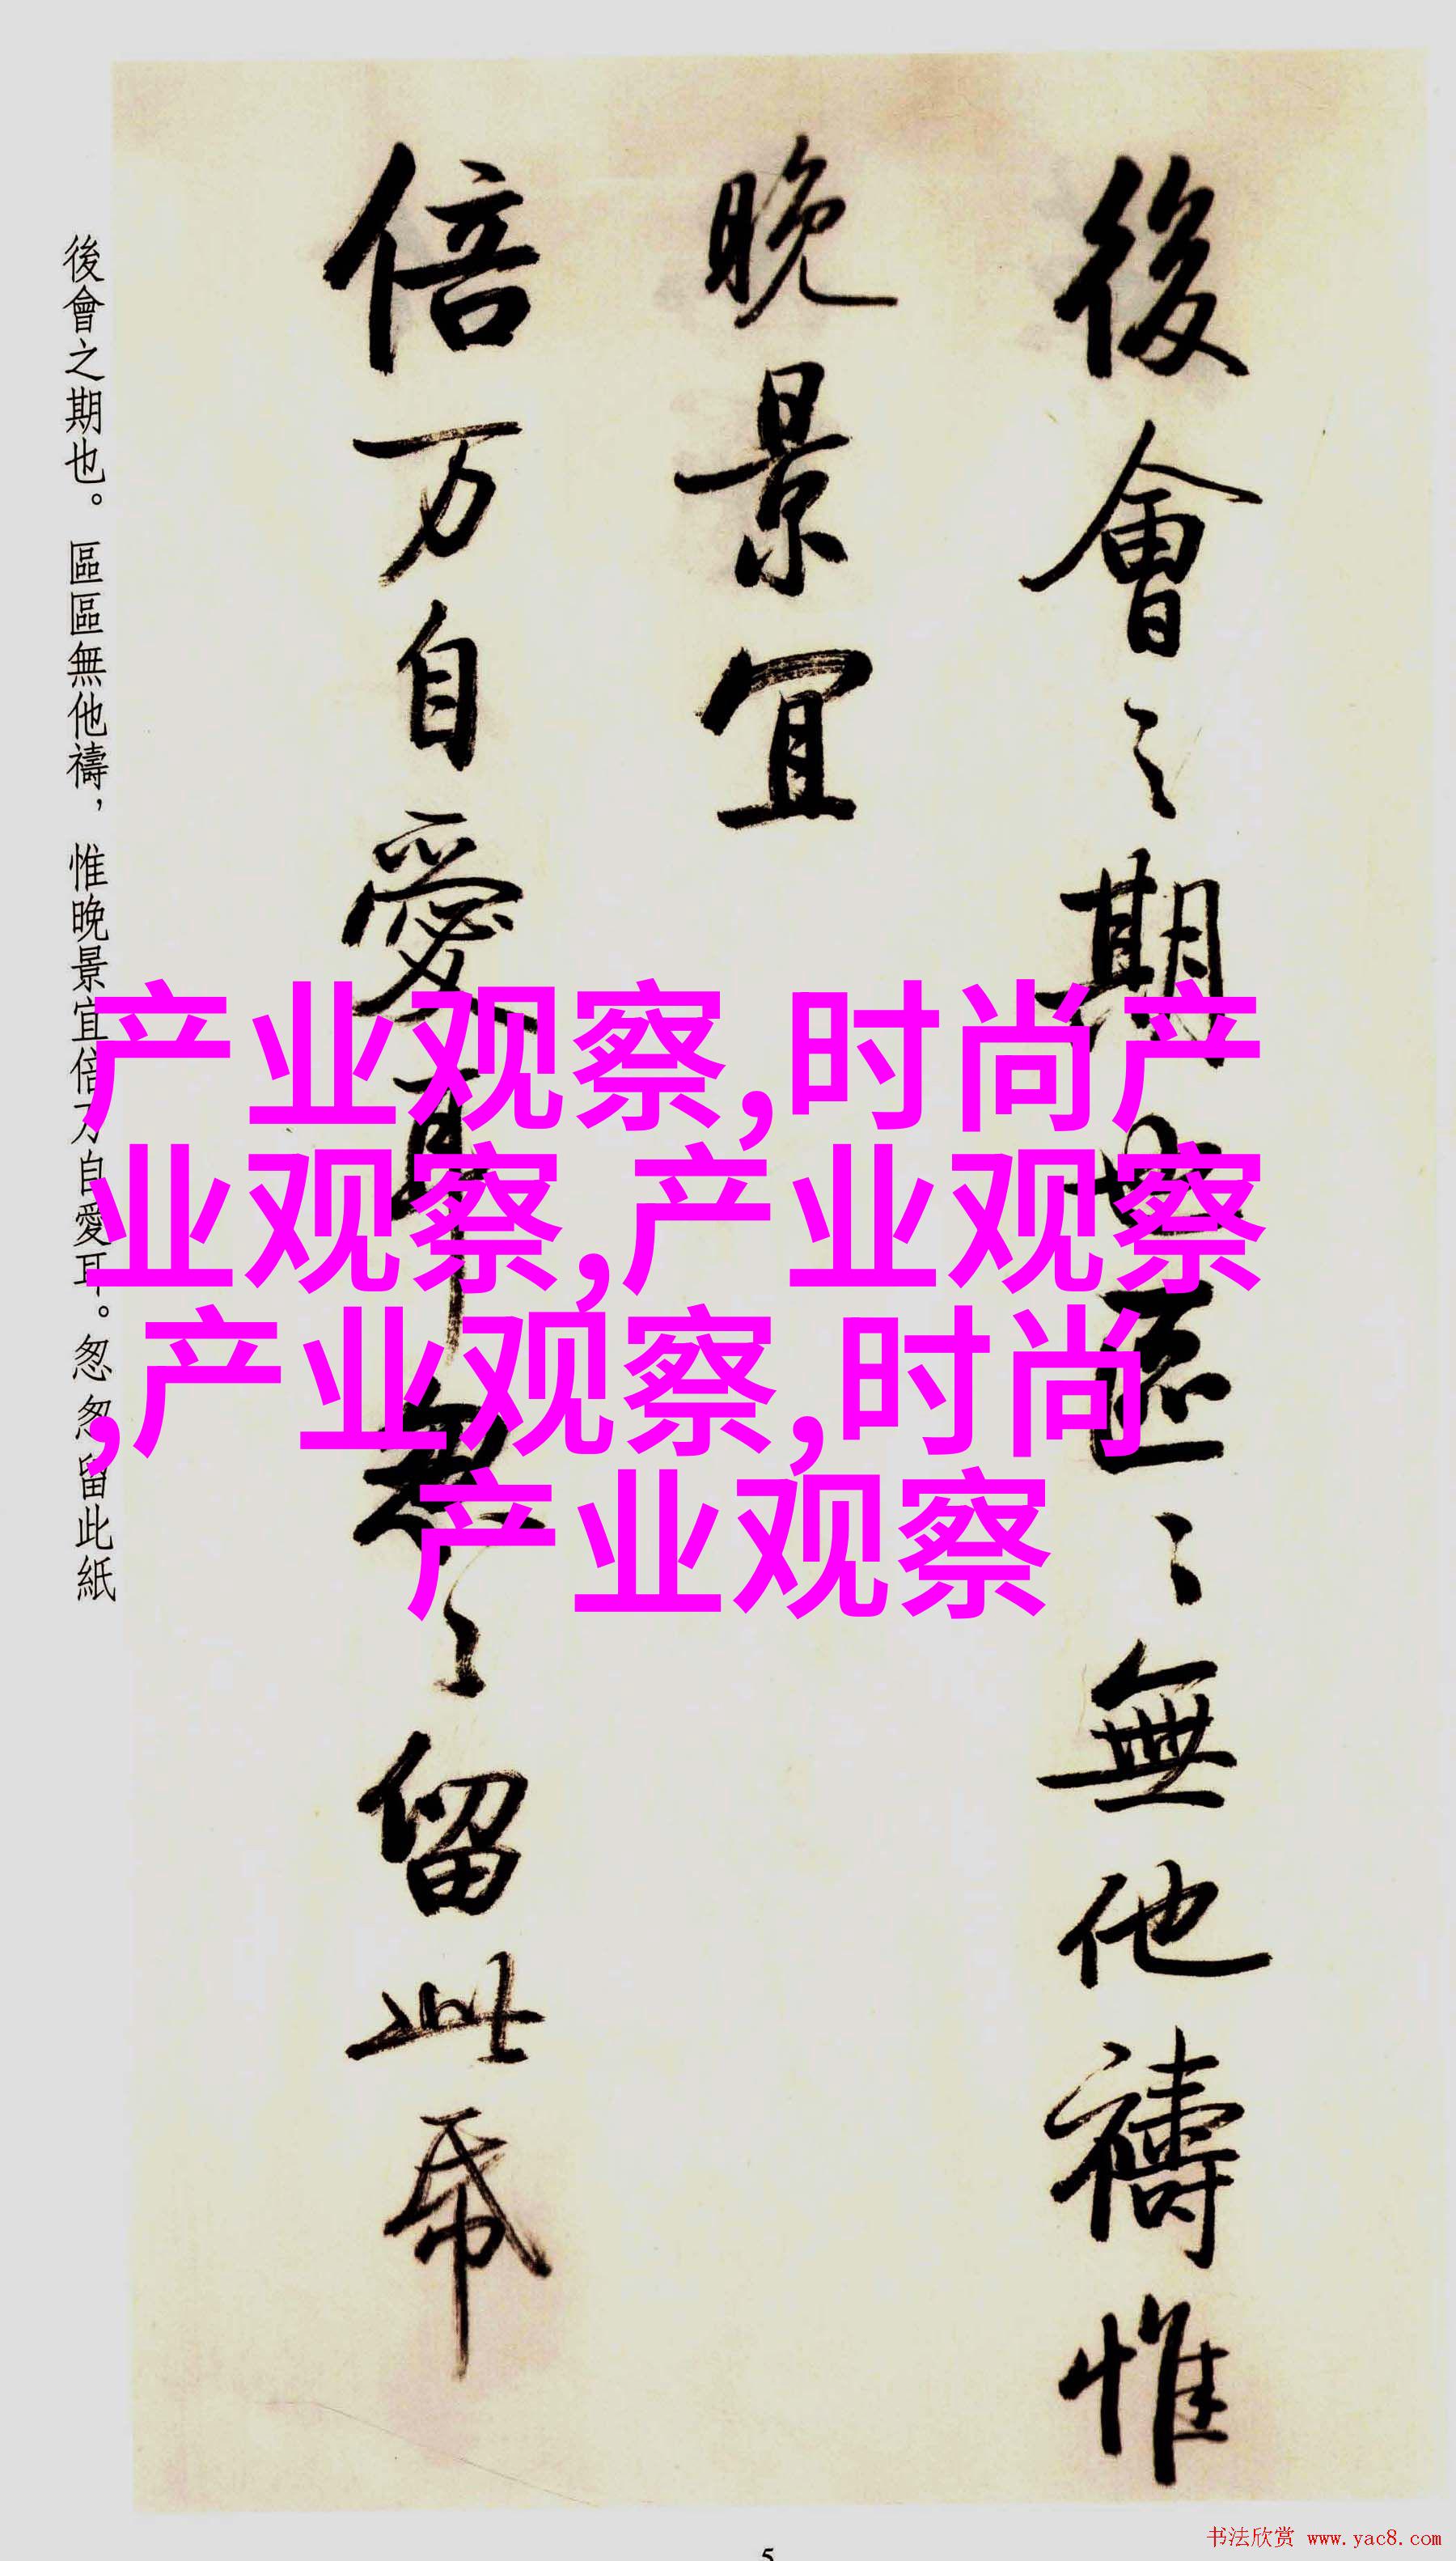 後會之期也區〻無他禱惟
晚景宜
倍万自愛耳怱〻留此帋
後會之期也。區區無他禱，惟晚景宜倍万自愛耳。怱怱留此紙
产业观察,时尚产
业观察,产业观察
,产业观察,时尚
产业观察
5
书法欣赏 www.yac8.com